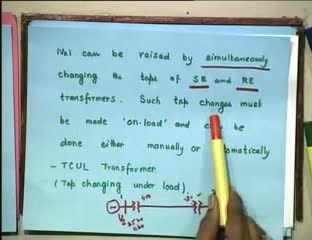 |VR| can be raised by simultaneously
changing the taps of SE and RE
transformers. Such tap changes must
be made 'on-load' and can be
done either manually or automatically
- TCUL Transformer
(Tap changing under load).